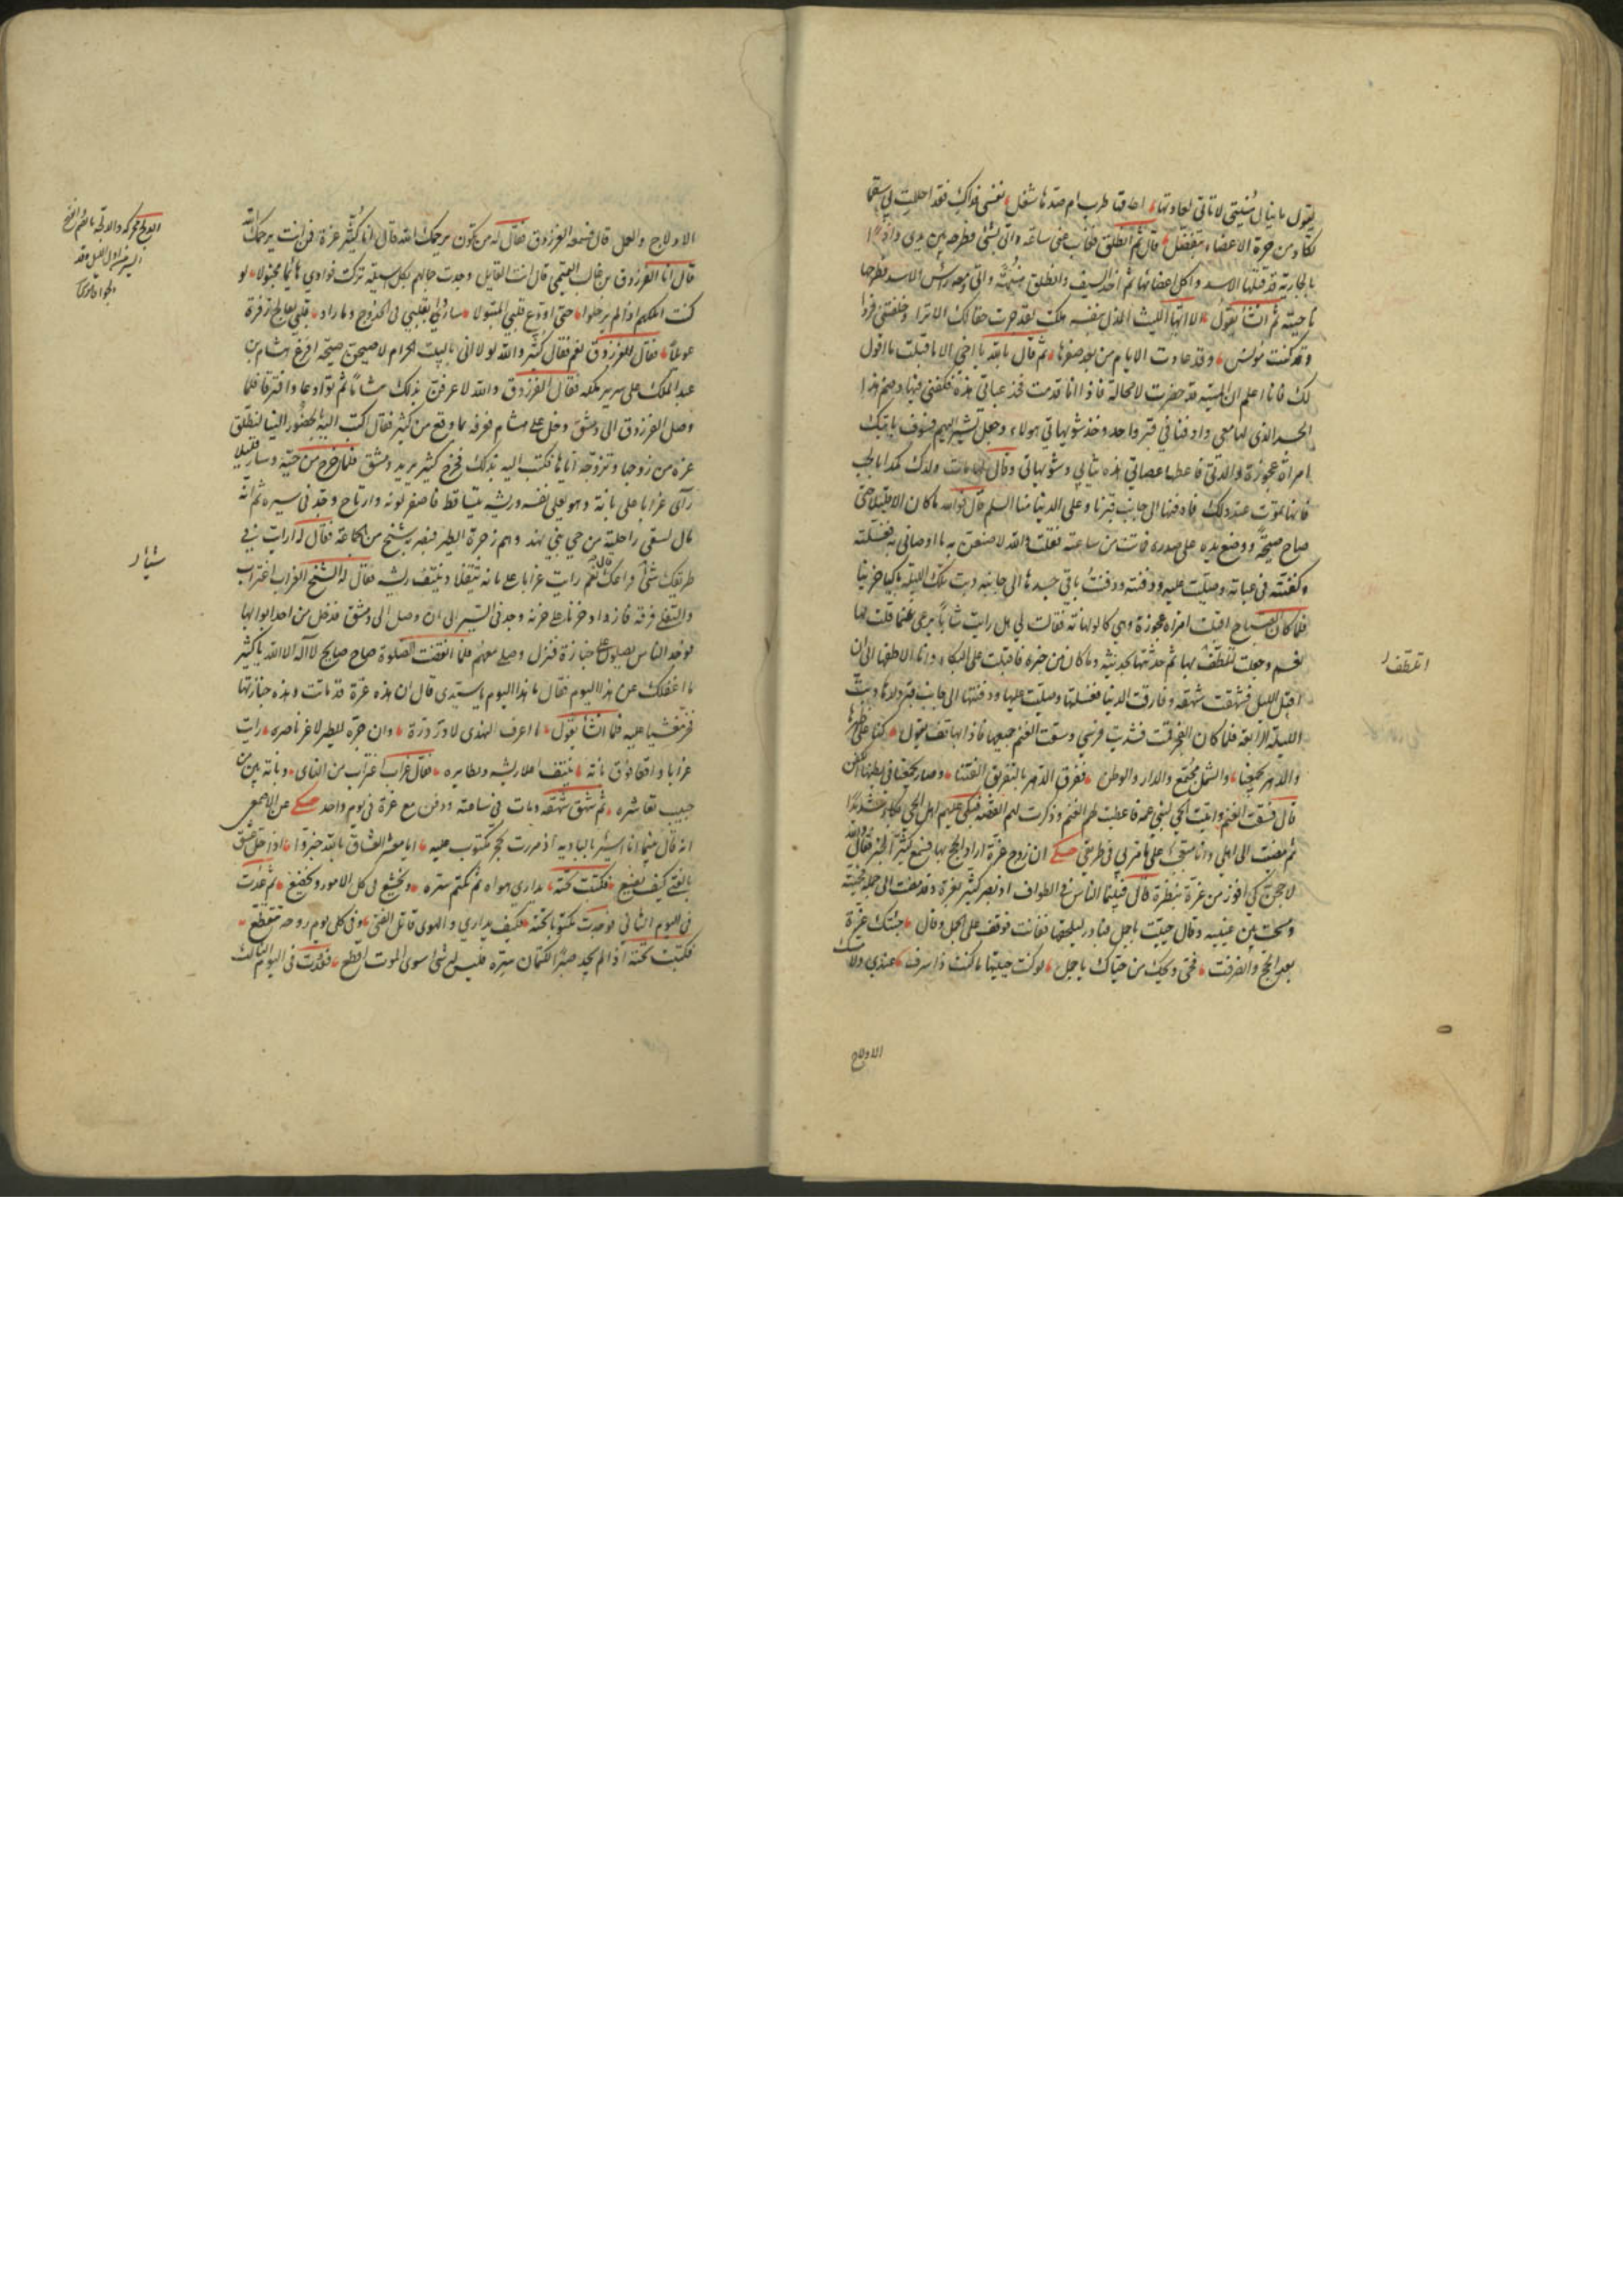 يقول ما بال مُنيتي لا تاتي لعادتها اعاقها طرب ام صدها شغل نفسي فداك فقد احللت بي سقما
تكاد من حرّه الاعضاء تنفصل قال ثم انطلق فغاب عني ساعة واتى بشئ فطرحه بين يدي واذا
بالجارية قد قتلها الاسد واكل اعضائها ثم اخذ السيف وانطلق واتى ومعه راس الاسد فطرحها
ناحيته ثم انشأ يقول الا ايها الليث المدل بنفسه هلكت لقد جرت حقا لك الاثرا وخلفتني فردا
وقد كنت مونس وقد عادت الايام من بعد صفرها ثم قال بالله يا اخي الا ما قبلت ما اقول
لك فانا اعلم ان المنيّة قد حضرت لا محالة فاذا انا قدمت فخذ عباتي هذه فكفني فيها وضم هذا
الجسد الذي لها معي وادفنا في قبر واحد وخذ شويهاتي هولاء وجعل تشير اليهم فسوف ياتيك
امراة عجوزة والدتي فاعطها عصاتي هذه ثيابي وشويهاتي وقال لها مات ولدك كمدا بالحب
فانها تموت عند ذلك فادفنها الى جانب قبرنا وعلى الدنيا منا السلم قال فوالله ما كان الا قليلا حتى
صاح صيحة ووضع يده على صدره فمات من ساعته فقلت والله لاصنعن به ما اوصاني به فغسلته
وكفنته في عباته وصليت عليه ودفنته ودفنت باقي جسدها الى جانبه وبت تلك الليلة باكيا حزينا
فلما كان الصباح اقبلت امراة عجوزة وهي كالولهانة فقالت لي هل رايت شابا يرعى غنما فقلت لها
نعم وجعلت اتلطف بها ثم حدثتها بحديثه وما كان من خبره فاقبلت على البكاء وانا الاطفها الى ان
اقبل الليل فشهقت شهقة وفارقت الدنيا فغسلتها وصليت عليها ودفنتها الى جانب قبر ولدها وبت
الليلة الرابعة فلما كان الفجر قمت فشديت فرسي وسقت الغنم جميعها فاذا بهاتف يقول كنا على ظهرها
والدهر يجمعنا والشمل مجتمع والدار والوطن ففرق الدهر بالتفريق الفتنا وصار يجمعنا في بطنها الكفن
قال فسقت الغنم واتيت الحي لبني عمه فاعطيتهم الغنم وذكرت لهم القصة فبكى عليهم اهل الحي بكاء شديدا
ثم مضيت الى اهلي وانا متعجب على ما مر بي في طريقي حكي ان زوج عزة اراد الحج بها فسمع كثير الخبر فقال والله
لاحجن لعلي افوز من عزة بنظرة قال فبينما الناس في الطواف اذ نظر كثير لعزة وقد مضت الى جمله فحيته
ومسحت بين عينيه وقال حييت يا جمل فبادر ليلحقها ففاتت فوقف على الجمل وقال حيّتك عزة
بعد الحج وانصرفت فحيّ ويحك من حياك يا جمل لو كنت حييتها ما كنت ذا سرف عندي ولا مسك
الادلاج
اتلطف
الادلاج والعمل قال فسمعه الفرزدق فقال له من تكون يرحمك الله قال انا كُثيّر عزة فمن انت يرحمك الله
قال انا الفرزدق بن غالب التميمي قال انت القايل وجدت جمالهم بكل اسيلة تركت فوادي هائما مخبولا لو
كنت املكهم اذا لم يرحلوا حتى اودع قلبي المتبولا ساروا بقلبي في الحدوج وغادروا قلبي يعالج زفرة
عويلا فقال الفرزدق نعم فقال كثير والله لولا اني بالبيت الحرام لاصيحن صيحة افزع هشام بن
عبد الملك على سرير ملكه فقال الفرزدق والله لاعرفن بذلك هشاما ثم توادعا وافترقا فلما
وصل الفرزدق الى دمشق دخل على هشام فعرفه بما وقع من كثير فقال اكتب اليه بالحضور الينا لنطلق
عزة من زوجها ونزوجه اياها فكتب اليه بذلك فخرج كثير يريد دمشق فلما خرج من حيّه وسار قليلا
رأى غرابا على بانة وهو يفلي نفسه وريشه يتساقط فاصفر لونه وارتاع وجد في سيره ثم انه
مال ليسقي راحلته من حي بني نهد وهم زجرة الطير فبصر به شيخ من الجماعة فقال له ارايت في
طريقك شئ فراعك قال نعم رايت غرابا على بانة يتفلا وينتف ريشه فقال له الشيخ الغراب اغتراب
والتفلي فرقة فازداد حزنا على حزنه وجد في السير الى ان وصل الى دمشق فدخل من احد ابوابها
فوجد الناس يصلون على جنازة فنزل وصلى معهم فلما انقضت الصلوة صاح صايح لا اله الا الله يا كثير
ما اغفلك عن هذا اليوم فقال ما هذا اليوم يا سيدي قال ان هذه عزة قد ماتت وهذه جنازتها
فخر مغشيا عليه فلما افاق انشأ يقول ما اعرف النهدي لا در درّه وان جره للطير لا عز ناصره رايت
غرابا واقعا فوق بانة ينتف اعلا ريشه ويطايره فقال غراب اغتراب من النأي وبانة بين من
حبيب تعاشره ثم شهق شهقة ومات في ساعته ودفن مع عزة في يوم واحد حكي عن الاصمعي
انه قال بينما انا اسير بالبادية اذ مررت بحجر مكتوب عليه ايا معشر العشاق بالله خبروا اذا حل عشق
بالفتى كيف يصنع فكتبت تحته يداري هواه ثم يكتم سره ويخشع في كل الامور ويخضع ثم عدت
في اليوم الثاني فوجدت مكتوبا تحته فكيف يداري والهوى قاتل الفتى وفي كل يوم روحه تتقطع
فكتبت تحته اذا لم يجد صبرا لكتمان سره فليس له شئ سوى الموت انفع فعدت في اليوم الثالث